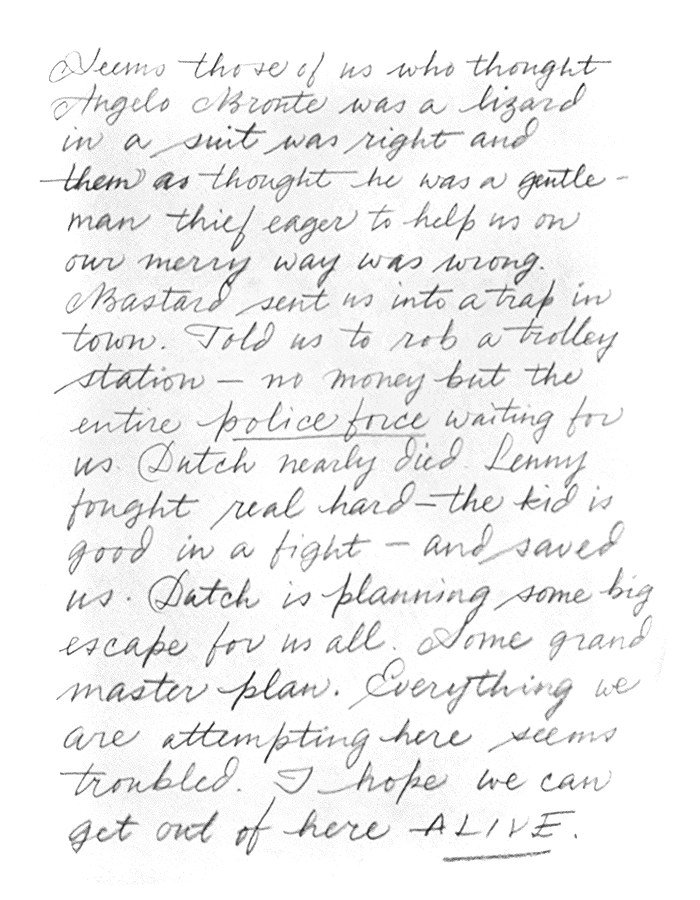 Seems those of us who thought
Angelo Bronte was a lizard
in a suit was right and
them as thought he was a gentle-
man thief eager to help us on
our merry way was wrong.
Bastard sent us into a trap in
town. Told us to rob a trolley
station – no money but the
entire police force waiting for
us. Dutch nearly died. Lenny
fought real hard – the kid is
good in a fight – and saved
us. Dutch is planning some big
escape for us all. Some grand
master plan. Everything we
are attempting here seems
troubled. I hope we can
get out of here ALIVE.